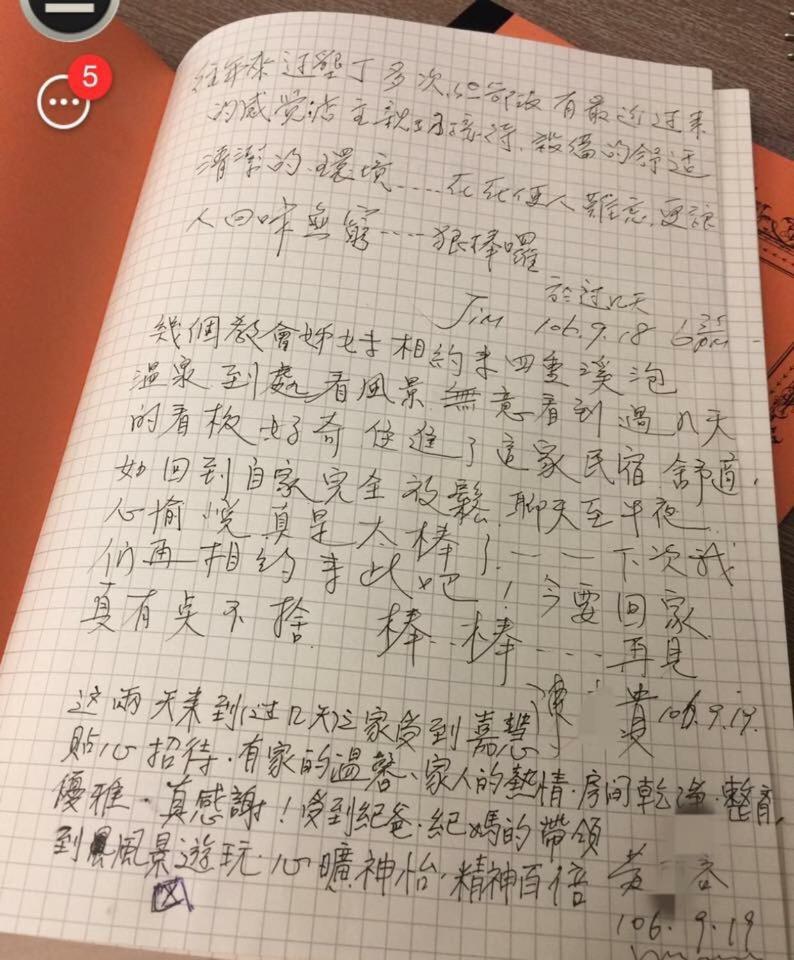 5
往年來過墾丁多次，但都沒有最近過來
的感覺店主親切接待、設備的舒适
清潔的環境....在在使人難忘，更讓
人回味無窮....很棒囉
於过几天
Jim 106.9.18 6 25 pm
幾個教會姊妹相約来四重溪泡
温泉到處看風景無意看到過几天
的看板好奇住進了這家民宿舒適，
如回到自家完全放鬆聊天至半夜
心愉悅真是太棒了——下次我
们再相約来此吧！今要回家
真有点不捨 棒..棒....再見
陳 貴 106.9.19.
这兩天来到(过几天)之家受到嘉慧
貼心招待.有家的温馨、家人的熱情.房间乾净.整齊，
優雅.真感謝！受到紀爸.紀媽的帶领
到風景遊玩.心曠神怡.精神百倍
黄 容
106.9.19